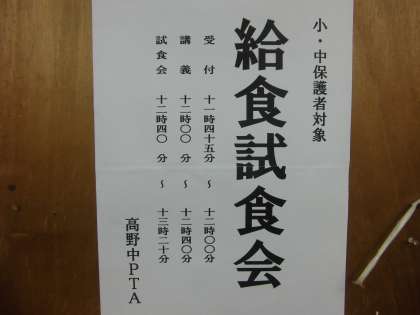 小・中保護者対象
給食試食会
受付 十一時四十五分 ～ 十二時〇〇分
講義 十二時〇〇分 ～ 十二時四〇分
試食会 十二時四〇分 ～ 十三時二十分
高野中PTA